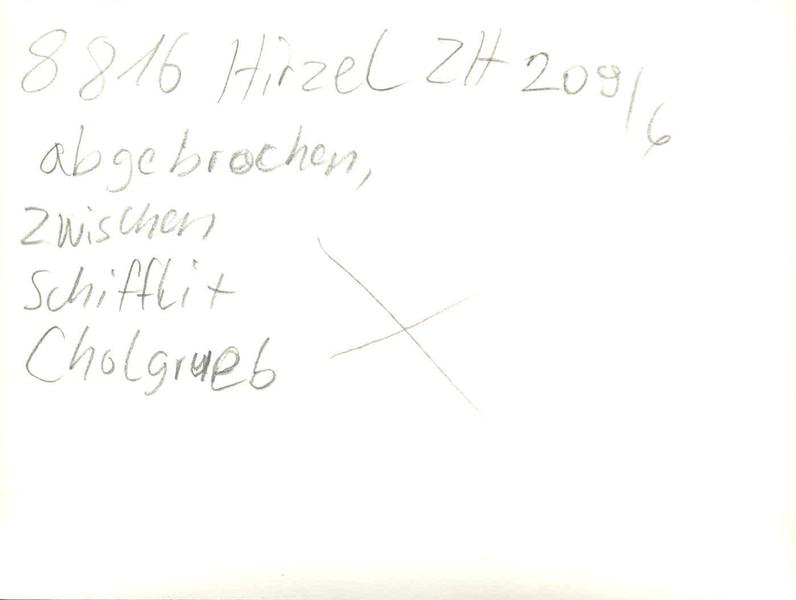 8816 Hirzel ZH 209/6
abgebrochen,
zwischen
Schifflit
Cholgrueb